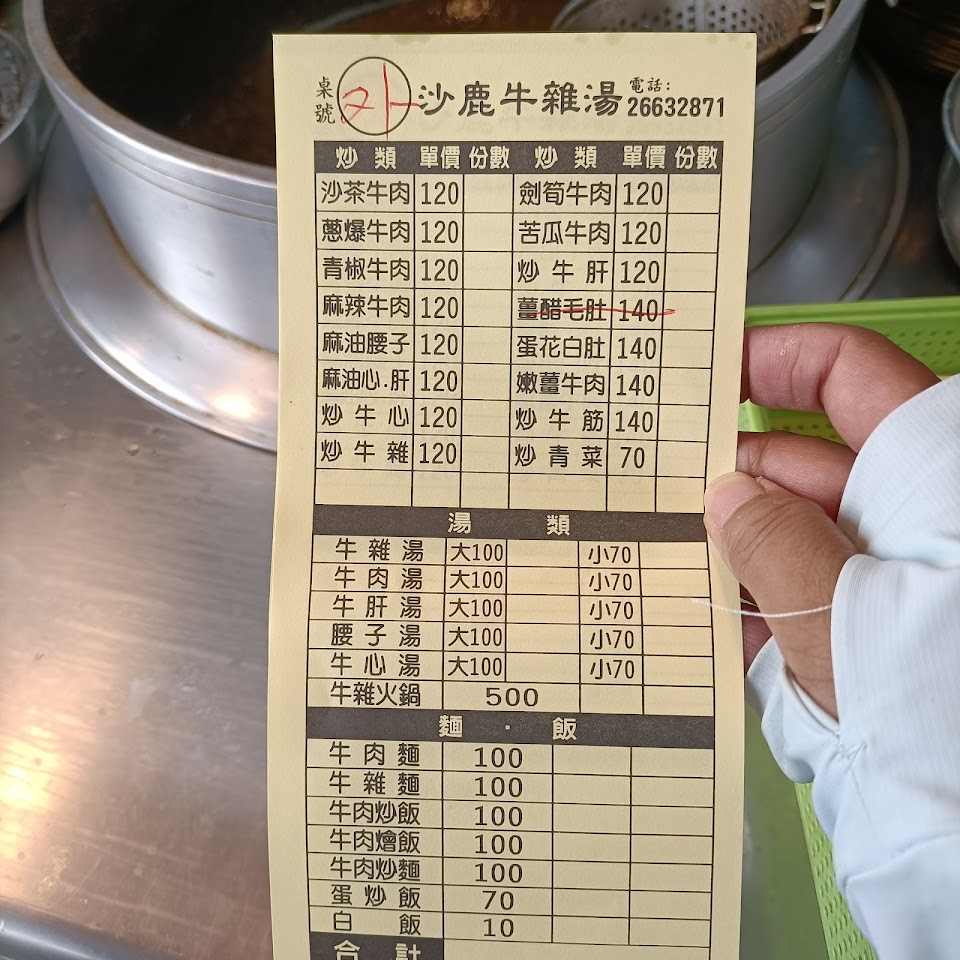 桌號 外 沙鹿牛雜湯 電話: 26632871
炒類 單價 份數 炒類 單價 份數
沙茶牛肉 120 劍筍牛肉 120
蔥爆牛肉 120 苦瓜牛肉 120
青椒牛肉 120 炒牛肝 120
麻辣牛肉 120 薑醋毛肚 140
麻油腰子 120 蛋花白肚 140
麻油心.肝 120 嫩薑牛肉 140
炒牛心 120 炒牛筋 140
炒牛雜 120 炒青菜 70
湯類
牛雜湯 大100 小70
牛肉湯 大100 小70
牛肝湯 大100 小70
腰子湯 大100 小70
牛心湯 大100 小70
牛雜火鍋 500
麵·飯
牛肉麵 100
牛雜麵 100
牛肉炒飯 100
牛肉燴飯 100
牛肉炒麵 100
蛋炒飯 70
白飯 10
合計